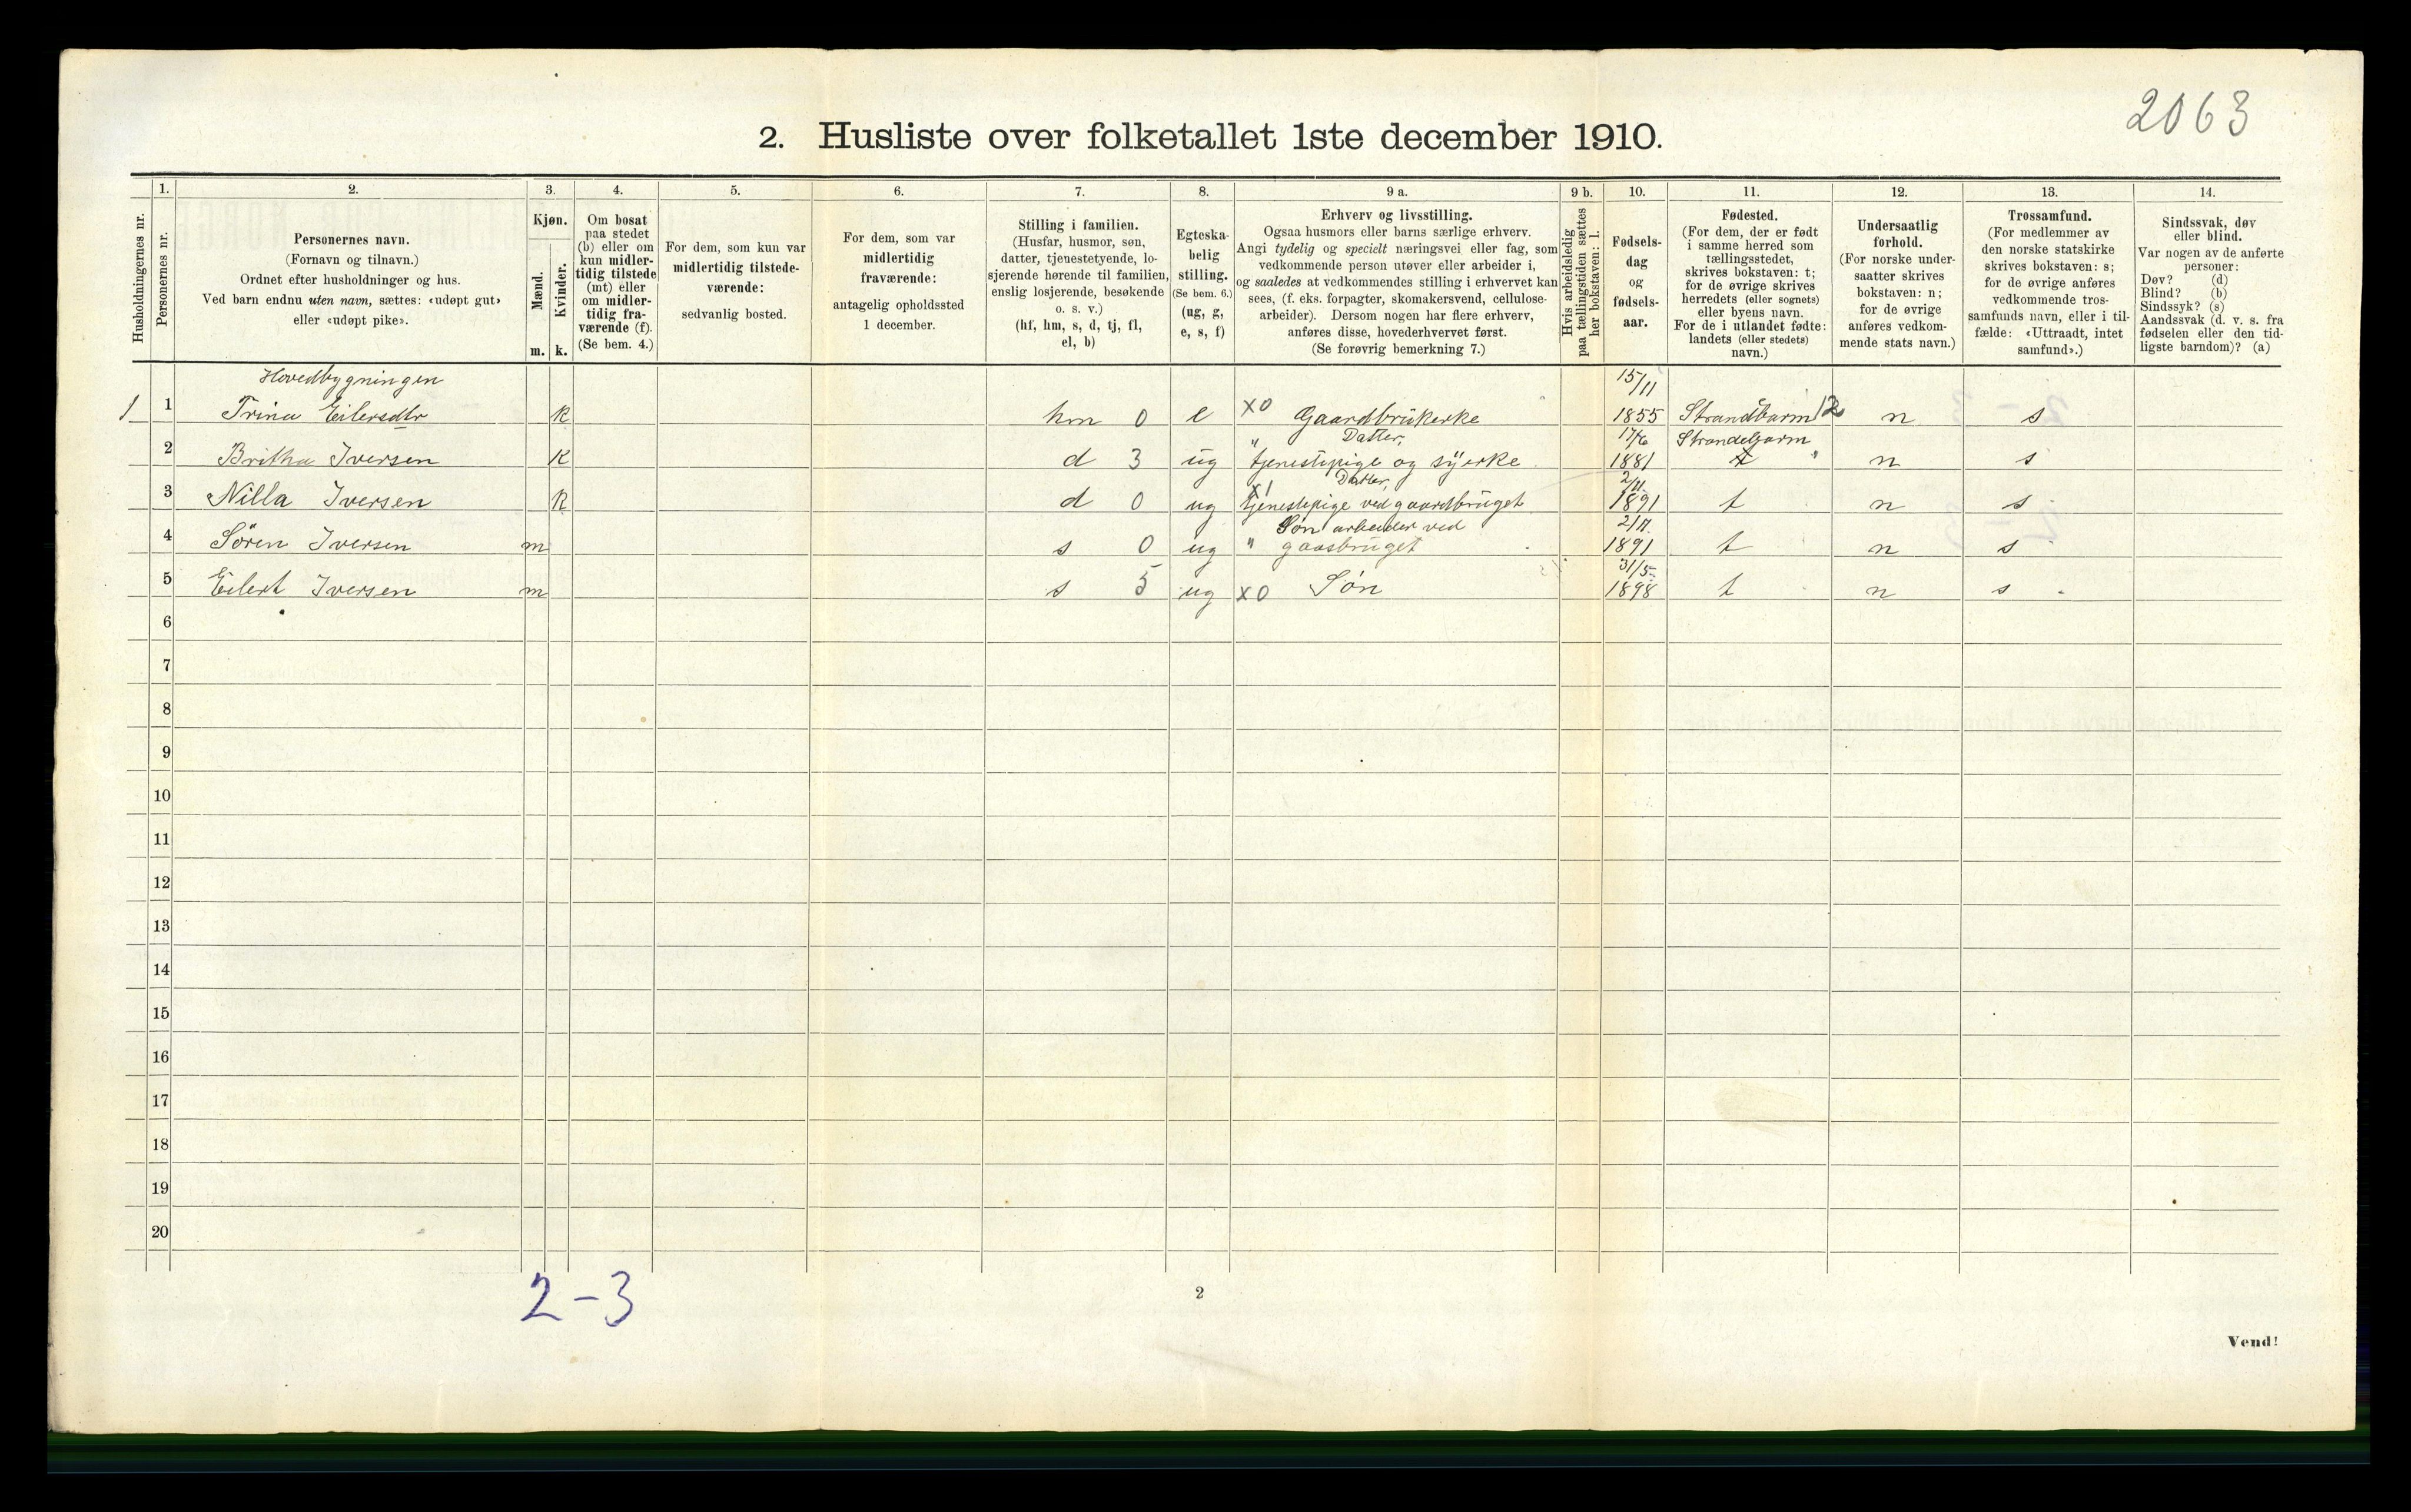 2063
2. Husliste over folketallet 1ste december 1910.
Husholdningernes nr.
1.
Personernes nr.
2.
Personernes navn.
(Fornavn og tilnavn.)
Ordnet efter husholdninger og hus.
Ved barn endnu uten navn, sættes: «udøpt gut»
eller «udøpt pike».
3.
Kjøn.
Mænd.
Kvinder.
m. k.
4.
Om bosat
paa stedet
(b) eller om
kun midler-
tidig tilstede
(mt) eller
om midler-
tidig fra-
værende (f).
(Se bem. 4.)
5.
For dem, som kun var
midlertidig tilstede-
værende:
sedvanlig bosted.
6.
For dem, som var
midlertidig
fraværende:
antagelig opholdssted
1 december.
7.
Stilling i familien.
(Husfar, husmor, søn,
datter, tjenestetyende, lo-
sjerende hørende til familien,
enslig losjerende, besøkende
o. s. v.)
(hf, hm, s, d, tj, fl,
el, b)
8.
Egteska-
belig
stilling.
(Se bem. 6.)
(ug, g,
e, s, f)
9 a.
Erhverv og livsstilling.
Ogsaa husmors eller barns særlige erhverv.
Angi tydelig og specielt næringsvei eller fag, som
vedkommende person utøver eller arbeider i,
og saaledes at vedkommendes stilling i erhvervet kan
sees, (f. eks. forpagter, skomakersvend, cellulose-
arbeider). Dersom nogen har flere erhverv,
anføres disse, hovederhvervet først.
(Se forøvrig bemerkning 7.)
9 b.
Hvis arbeidsledig
paa tællingstiden sættes
her bokstaven: l.
10.
Fødsels-
dag
og
fødsels-
aar.
11.
Fødested.
(For dem, der er født
i samme herred som
tællingsstedet,
skrives bokstaven: t;
for de øvrige skrives
herredets (eller sognets)
eller byens navn.
For de i utlandet fødte:
landets (eller stedets)
navn.)
12.
Undersaatlig
forhold.
(For norske under-
saatter skrives
bokstaven: n;
for de øvrige
anføres vedkom-
mende stats navn.)
13.
Trossamfund.
(For medlemmer av
den norske statskirke
skrives bokstaven: s;
for de øvrige anføres
vedkommende tros-
samfunds navn, eller i til-
fælde: «Uttraadt, intet
samfund».)
14.
Sindssvak, døv
eller blind.
Var nogen av de anførte
personer:
Døv? (d)
Blind? (b)
Sindssyk? (s)
Aandssvak (d. v. s. fra
fødselen eller den tid-
ligste barndom)? (a)
Hovedbygningen 15/11
1 1 Trina Eilersdtr k hm 0 e x0 Gaardbrukerke 1855 Strandbarm 12 n s
" Datter, 17/6 Strandebarm
2 Britha Iversen k d 3 ug tjenestepige og syerke 1881 t " n s
Datter, 2/11
3 Nilla Iversen k d 0 ug x1 tjenestepige ved gaardbruget 1891 t n s
Søn arbeider ved 2/11
4 Søren Iversen m s 0 ug " gaasbruget 1891 t n s
31/5
5 Eilert Iversen m s 5 ug x0 Søn 1898 t n s
6
7
8
9
10
11
12
13
14
15
16
17
18
19
20
2-3
2
Vend!